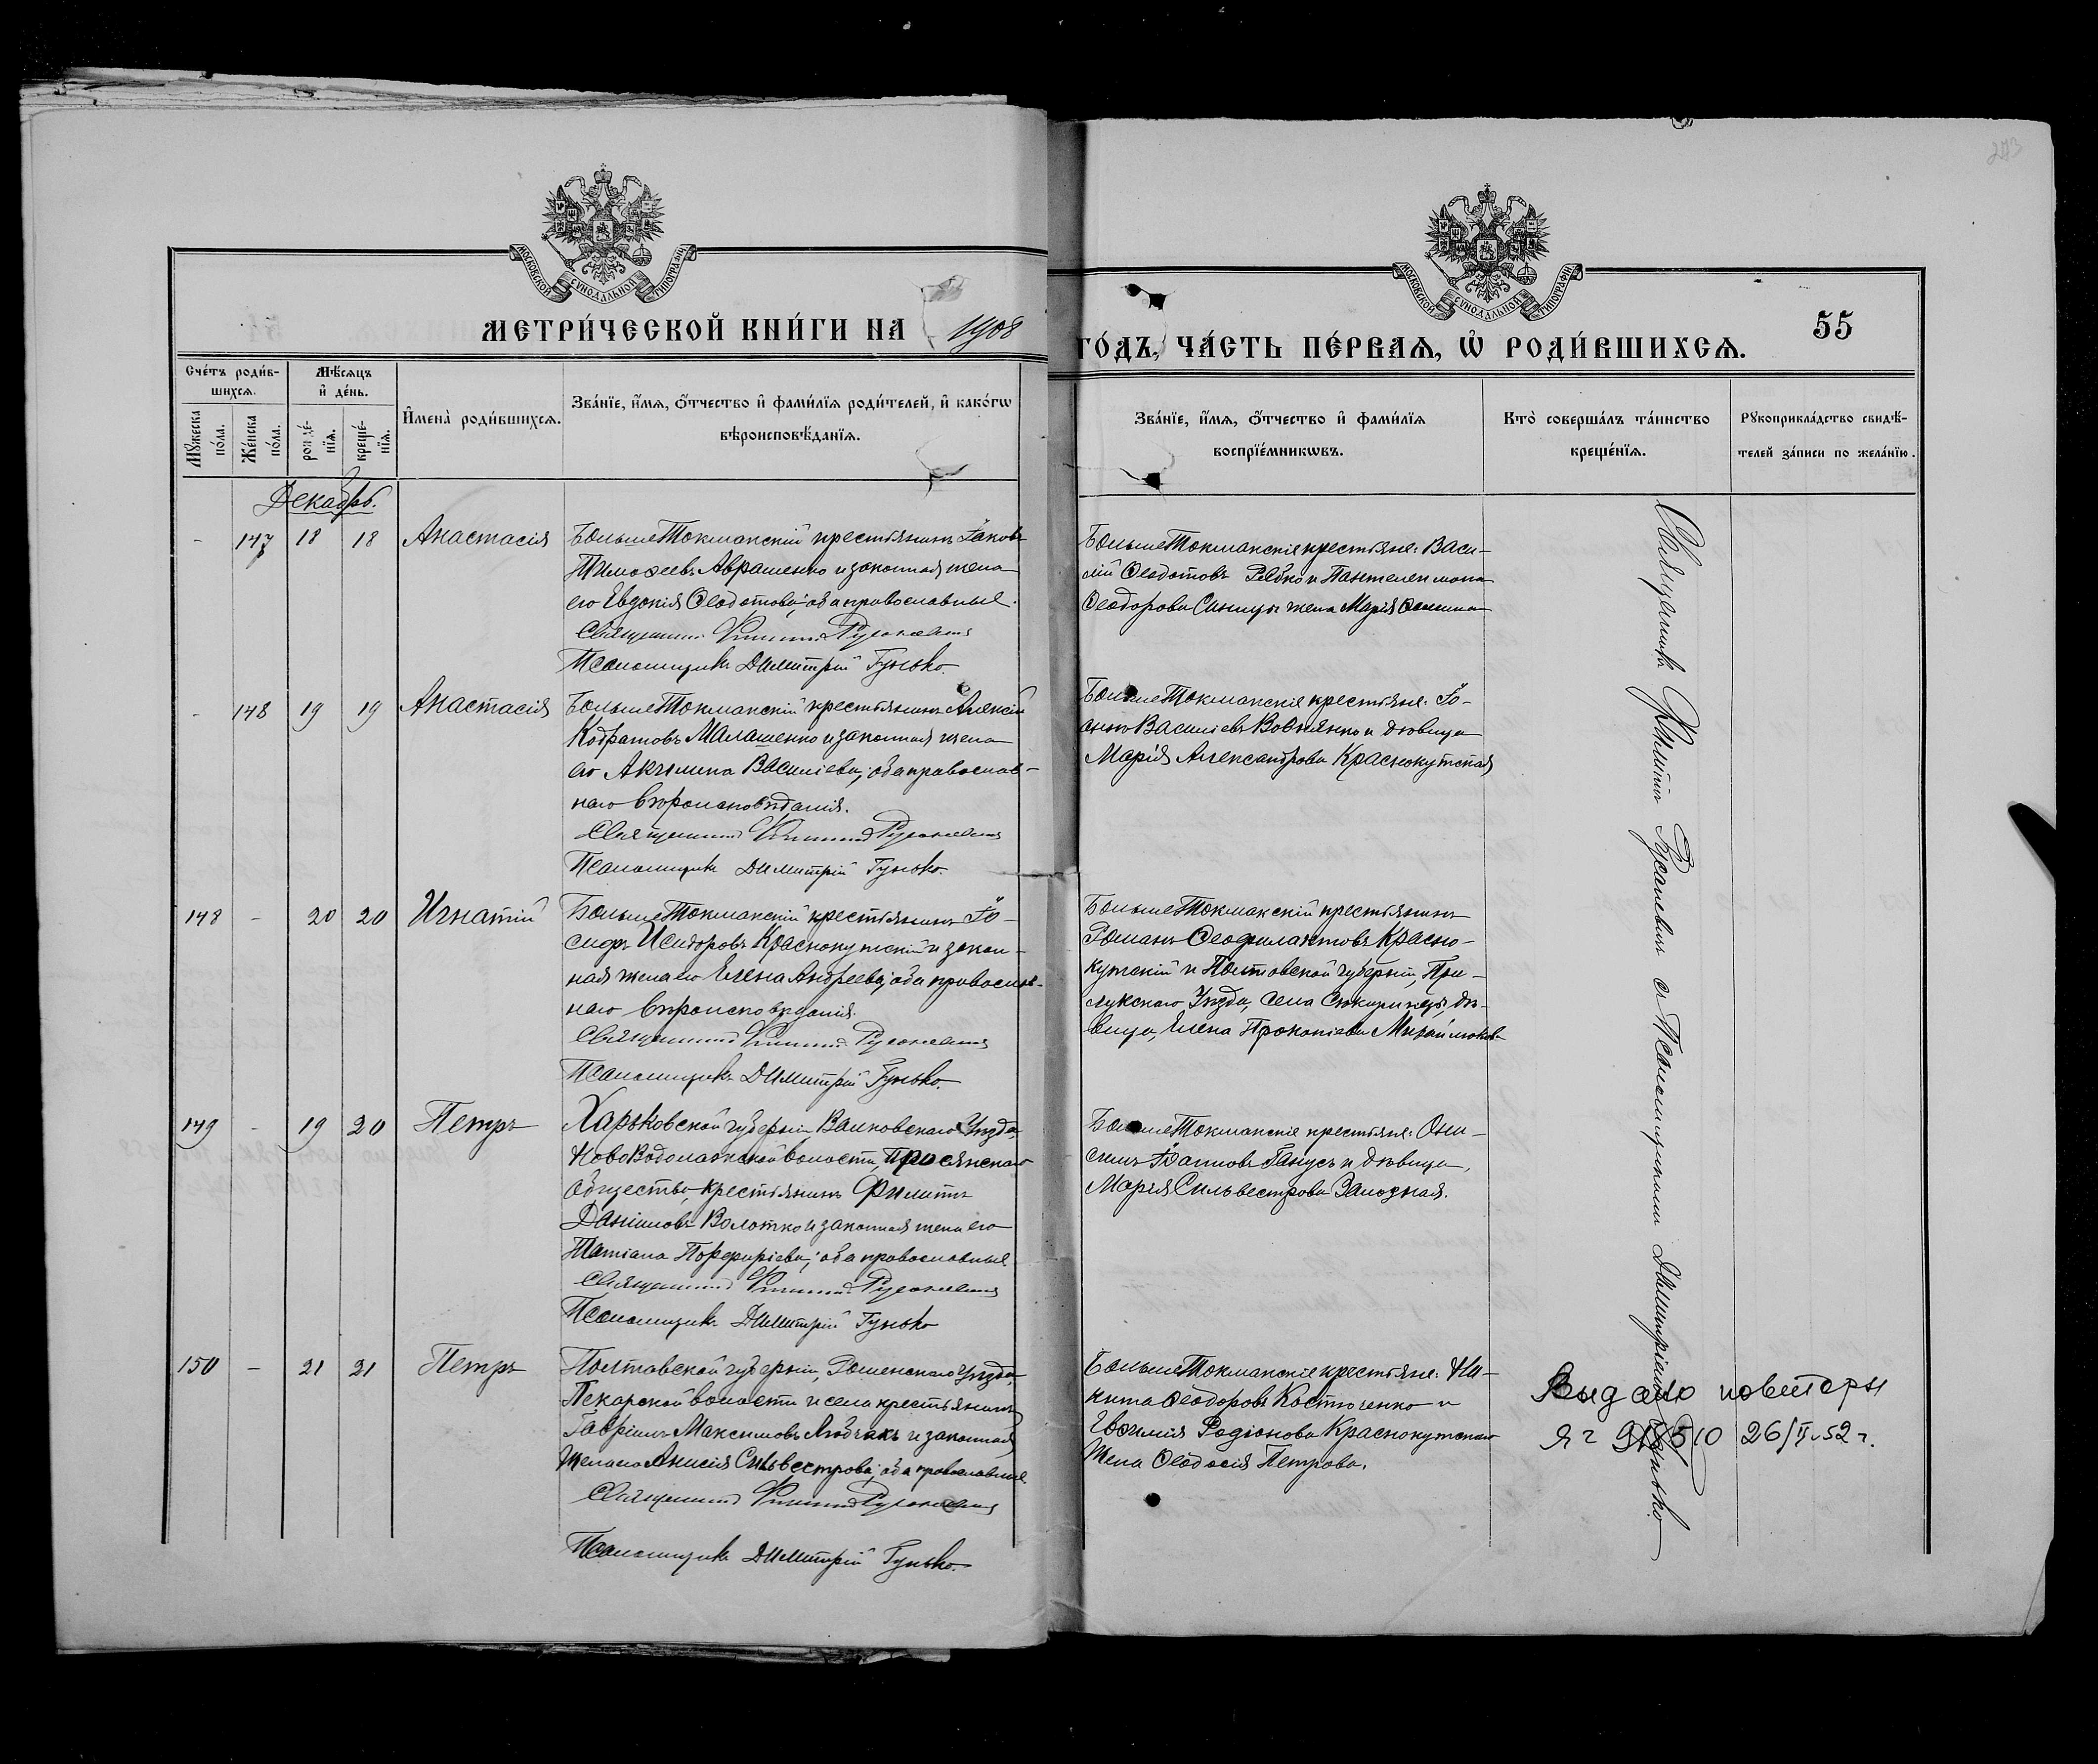 273
МОСКОВСКОЙ СѴНОДАЛЬНОЙ ТИПОГРАФІИ
МЕТРИ́ЧЕСКОЙ КНИ́ГИ НА 1908
МОСКОВСКОЙ СѴНОДАЛЬНОЙ ТИПОГРАФІИ
ГО́ДЪ, ЧА́СТЬ ПЕ́РВАѦ, Ѡ҆ РОДИ́ВШИХСѦ. 55
Сче́тъ роди́в-
шихсѧ.
Мꙋ́жеска по́ла.
Же́нска по́ла.
Мѣ́сѧцъ
и҆ де́нь.
рожде́-
нїѧ.
креще́-
нїѧ.
И҆мена̀ роди́вшихсѧ.
Зва́нїе, и҆́мѧ, ѻ҆́тчество и҆ фами́лїѧ роди́телей, и҆ како́гѡ
вѣроисповѣ́данїѧ.
Зва́нїе, и҆́мѧ, ѻ҆́тчество и҆ фами́лїѧ
воспрїе́мникѡвъ.
Кто̀ соверша́лъ та́инство
креще́нїѧ.
Рꙋкоприкла́дство свидѣ́-
телей за́писи по жела́нїю.
Декабрь.
- 147 18 18 Анастасія
БольшеТокмакскій крестьянинъ Іаковъ
Тимоѳеевъ Аврашенко и законная жена
его Евдокія Ѳеодотова; оба православные.
Священникъ Филиппъ Русаневичъ
Псаломщикъ Димитрій Гунько.
БольшеТокмакскіе крестьяне: Васи-
лій Ѳеодотовъ Рябко и Пантелеимона
Ѳеодорова Синицы жена Марія
- 148 19 19 Анастасія
БольшеТокмакскій крестьянинъ Алексій
Кодратовъ Малашенко и законная жена
его Акилина Василіева; оба православ-
наго вѣроисповѣданія.
Священникъ Филиппъ Русаневичъ
Псаломщикъ Димитрій Гунько.
БольшеТокмакскіе крестьяне: Іо-
аннъ Василіевъ Вовнянко и дѣвица
Марія Александрова Краснокутская
148 - 20 20 Игнатій
БольшеТокмакскій крестьянинъ Іо-
сифъ Исидоровъ Краснокутскій и закон-
ная жена его Елена Андреева; оба православ-
наго вѣроисповѣданія.
Священникъ Филиппъ Русаневичъ
Псаломщикъ Димитрій Гунько.
БольшеТокмакскій крестьянинъ
Романъ Ѳеофилактовъ Красно-
кутскій и Полтавской губерніи, При-
лукскаго Уѣзда, села Сокиринцы, дѣ-
вица, Елена Прокопіева
149 - 19 20 Петръ
Харьковской губерніи Валковскаго Уѣзда
НовоВодолажской волости, Просянскаго
Общества, крестьянинъ Филиппъ
Даніиловъ Волотко и законная жена его
Татіана Порфиріева; оба православные
Священникъ Филиппъ Русаневичъ
Псаломщикъ Димитрій Гунько
БольшеТокмакскіе крестьяне: Они-
симъ Іоанновъ Ганусъ и дѣвица,
Марія Сильвестрова Залозная.
150 - 21 21 Петръ
Полтавской губерніи, Роменскаго Уѣзда
Пекарской волости и села крестьянинъ
Гавріилъ Максимовъ Любчакъ и законная
жена его Анисія Сильвестрова; оба православные
Священникъ Филиппъ Русаневичъ
Псаломщикъ Димитрій Гунько.
БольшеТокмакскіе крестьяне: Ни-
кита Ѳеодоровъ Костюченко и
Евѳимія Родіонова Краснокутскаго
жена Ѳеодосія Петрова.
Священникъ Филиппъ Русаневичъ съ Псаломщикомъ Димитріемъ Гунько
Выдано повторн
26/V-52 г.